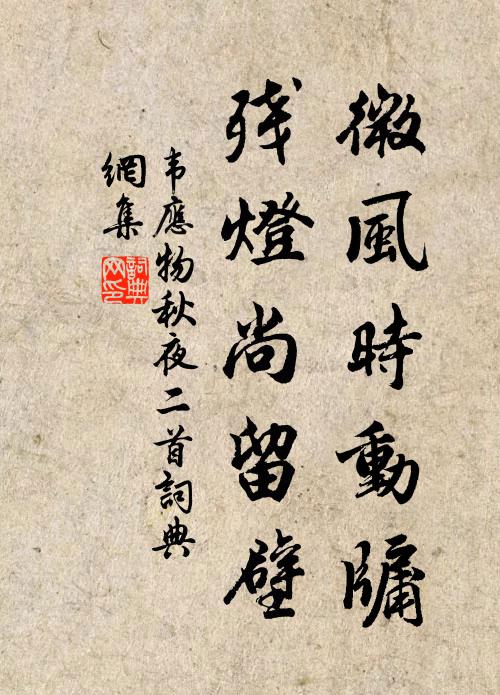 微風時動牖
残燈尚留壁
韦應物秋夜二首詞典
網集
詞典
网印